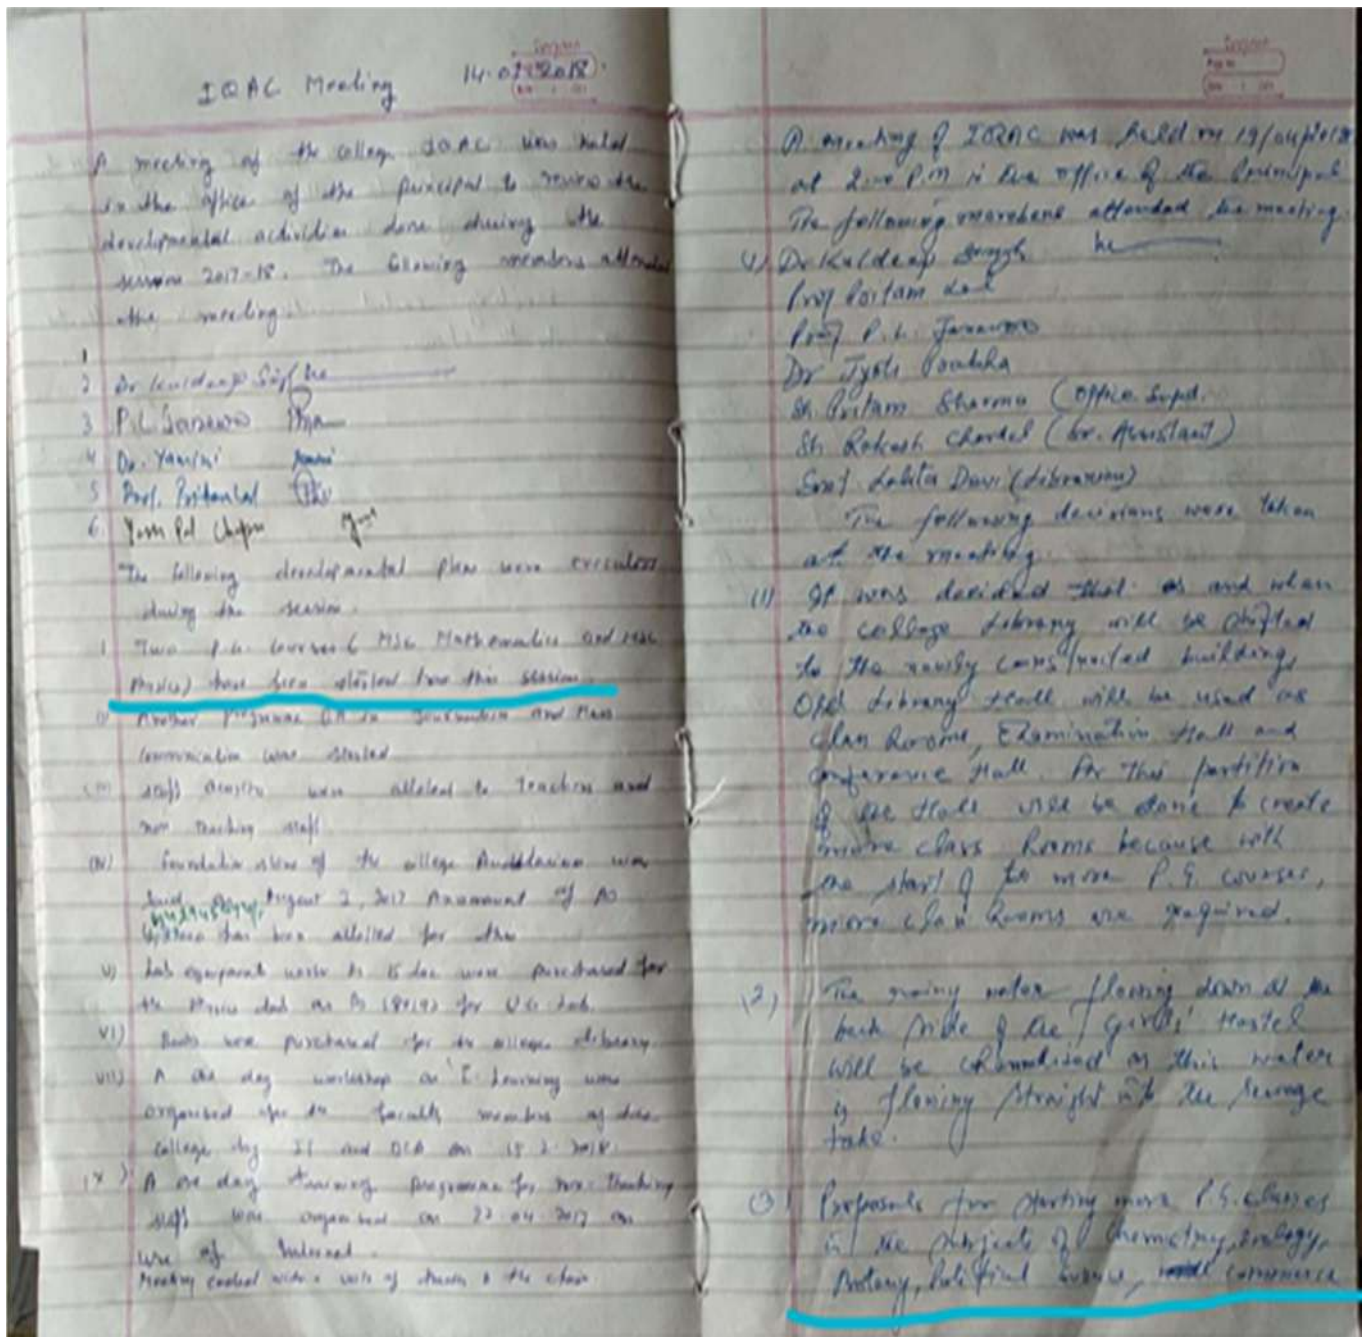 IQAC Meeting 14.0 .2018.
A meeting of the college IQAC was held
in the office of the principal to review the
developmental activities done during the
session 2017-18. The following members attended
the meeting.
1
2 Dr Kuldeep Singh
3 P.L.
4 Dr. Yamini
5 Prof. Pritam Lal
6 Yash Pal
The following developmental plans were executed
during the session.
1 Two P.G. Courses ( MSc Mathematics and MSc
Physics) have been started from this session.
Another programme BA in Journalism and Mass
Communication was started
were allotted to Teachers and
non Teaching staff
(iv) Foundation stone of the college Auditorium was
August 2, 2017 An amount of Rs
has been allotted for this
v) Lab worth Rs 15 lac were purchased for
the Physics Lab Rs for UG Lab.
vi) Books were purchased for the college library
vii) A one day workshop on E-Learning was
organised for the faculty members of the
college by IT and on 15.2.2018.
A one day training programme for non-Teaching
staff was organised on 22-04-2017 on
use of Internet.
Meeting ended with a vote of thanks to the chair
A meeting of IQAC was held on 19/04/2018
at 2.00 P.M in the office of the Principal
The following members attended the meeting.
1) Dr Kuldeep Singh
Prof Pritam Lal
Prof P.L.
Dr Jyoti
Sh. Pritam Sharma (Office Supd.
Sh Rakesh (Sr. Assistant)
Smt Lalita Devi (Librarian)
The following decisions were taken
at the meeting.
(1) It was decided that as and when
the college Library will be shifted
to the newly constructed building,
Old Library Hall will be used as
class Rooms, Examination Hall and
conference Hall. For this partition
of the Hall will be done to create
more class Rooms because with
the start of more P.G. courses,
more class Rooms are required.
(2) The water flowing down at the
back side of the Girls' Hostel
will be channelised as this water
is flowing straight into the sewage
(3) Proposals for starting more P.G. classes
in the subjects of Chemistry, Zoology,
Botany, Political Science, commerce